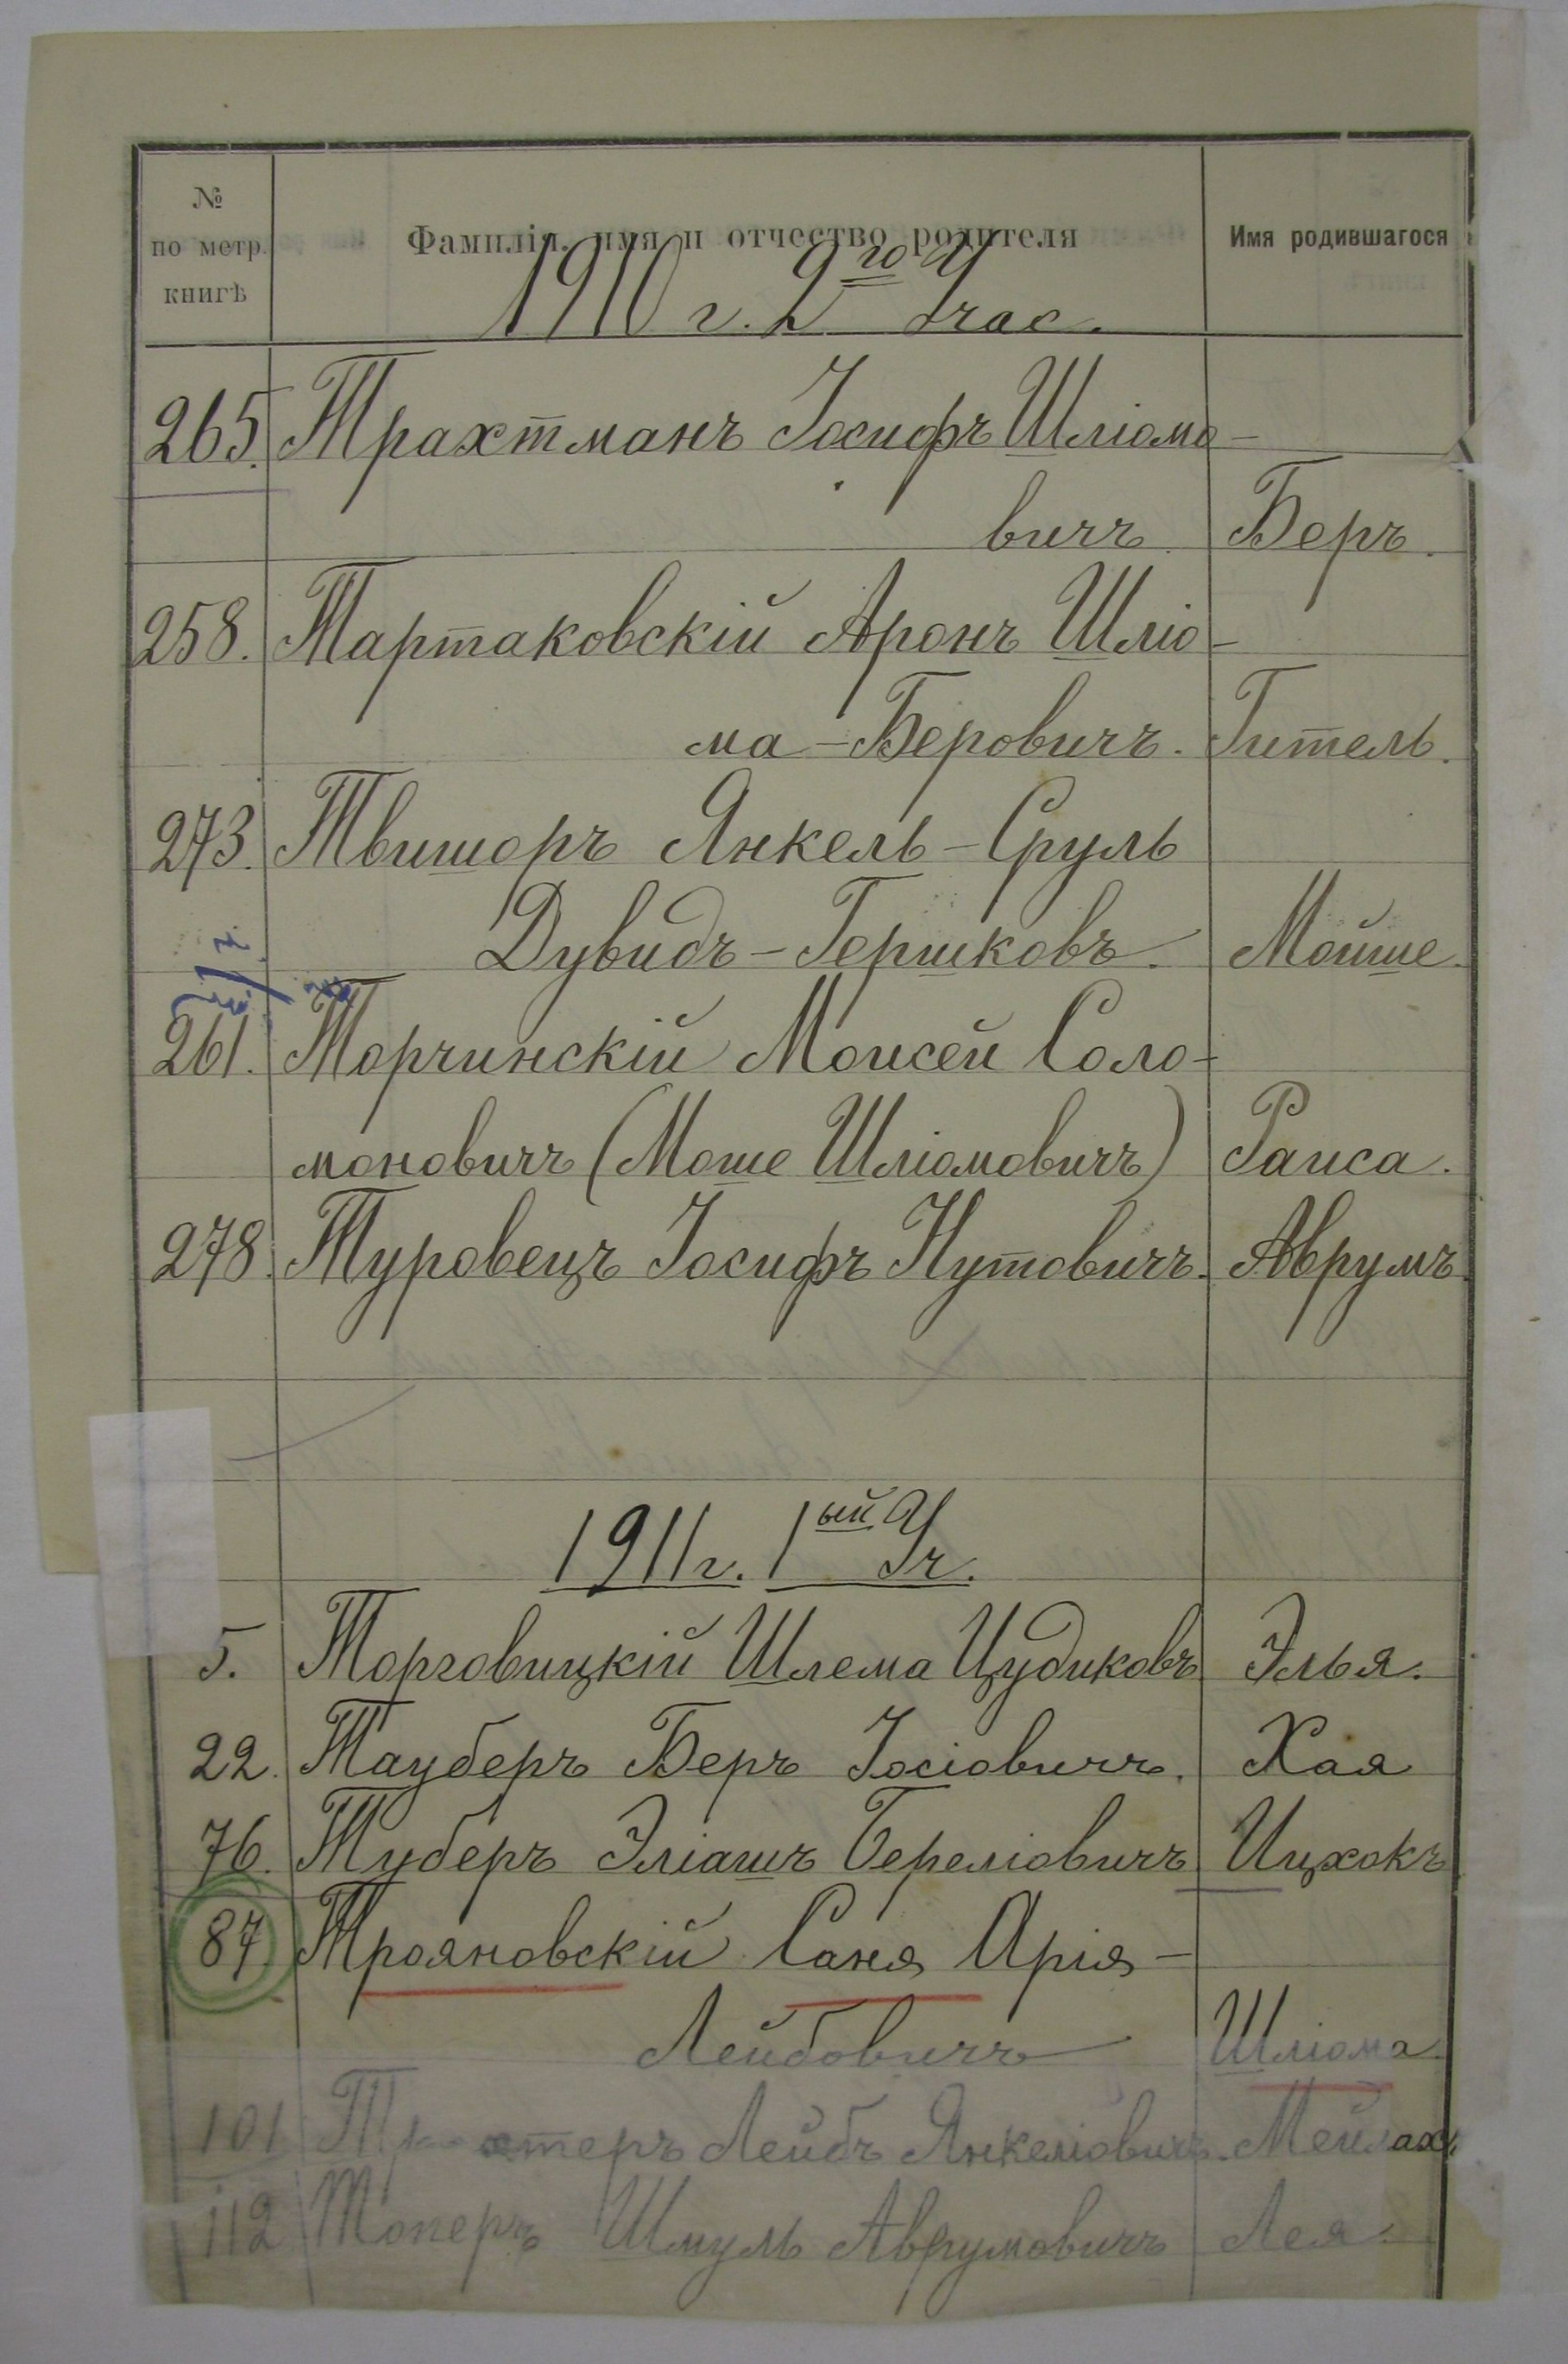 № по метр. книгѣ
Фамилія, имя и отчество родителя
Имя родившагося
1910 г. 2го Учас.
265. Трахтманъ Іосифъ Шліомо-
вичъ. Беръ.
258. Тартаковскій Аронъ Шліо-
ма-Беровичъ. Гитель.
273. Твишоръ Янкель-Сруль
Дувидъ-Гершковъ. Мойше.
261. Торчинскій Моисей Соло-
моновичъ (Моше Шліомовичъ) Раиса.
278. Туровецъ Іосифъ Нутовичъ. Аврумъ.
1911 г. 1ый Уч.
5. Торговицкій Шлема Цудиковъ Элья.
22. Тауберъ Беръ Іосіовичъ. Хая
76. Туберъ Эліашъ Береліовичъ Ицхокъ
87. Трояновскій Саня Арія-
Лейбовичъ Шліома
101 Лейбъ Янкеліовичъ. Мейлахъ
112 Топеръ Шмуль Аврумовичъ Лея.